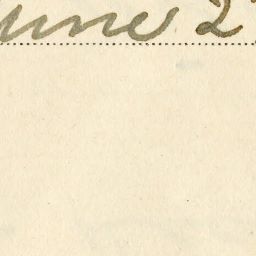 une 2